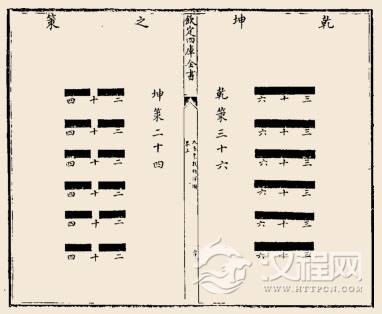 乾坤之策
乾策三十六
三十六
三十六
三十六
三十六
三十六
三十六
欽定四庫全書
坤策二十四
二十四
二十四
二十四
二十四
二十四
二十四
汉程网
HTTPCN.COM